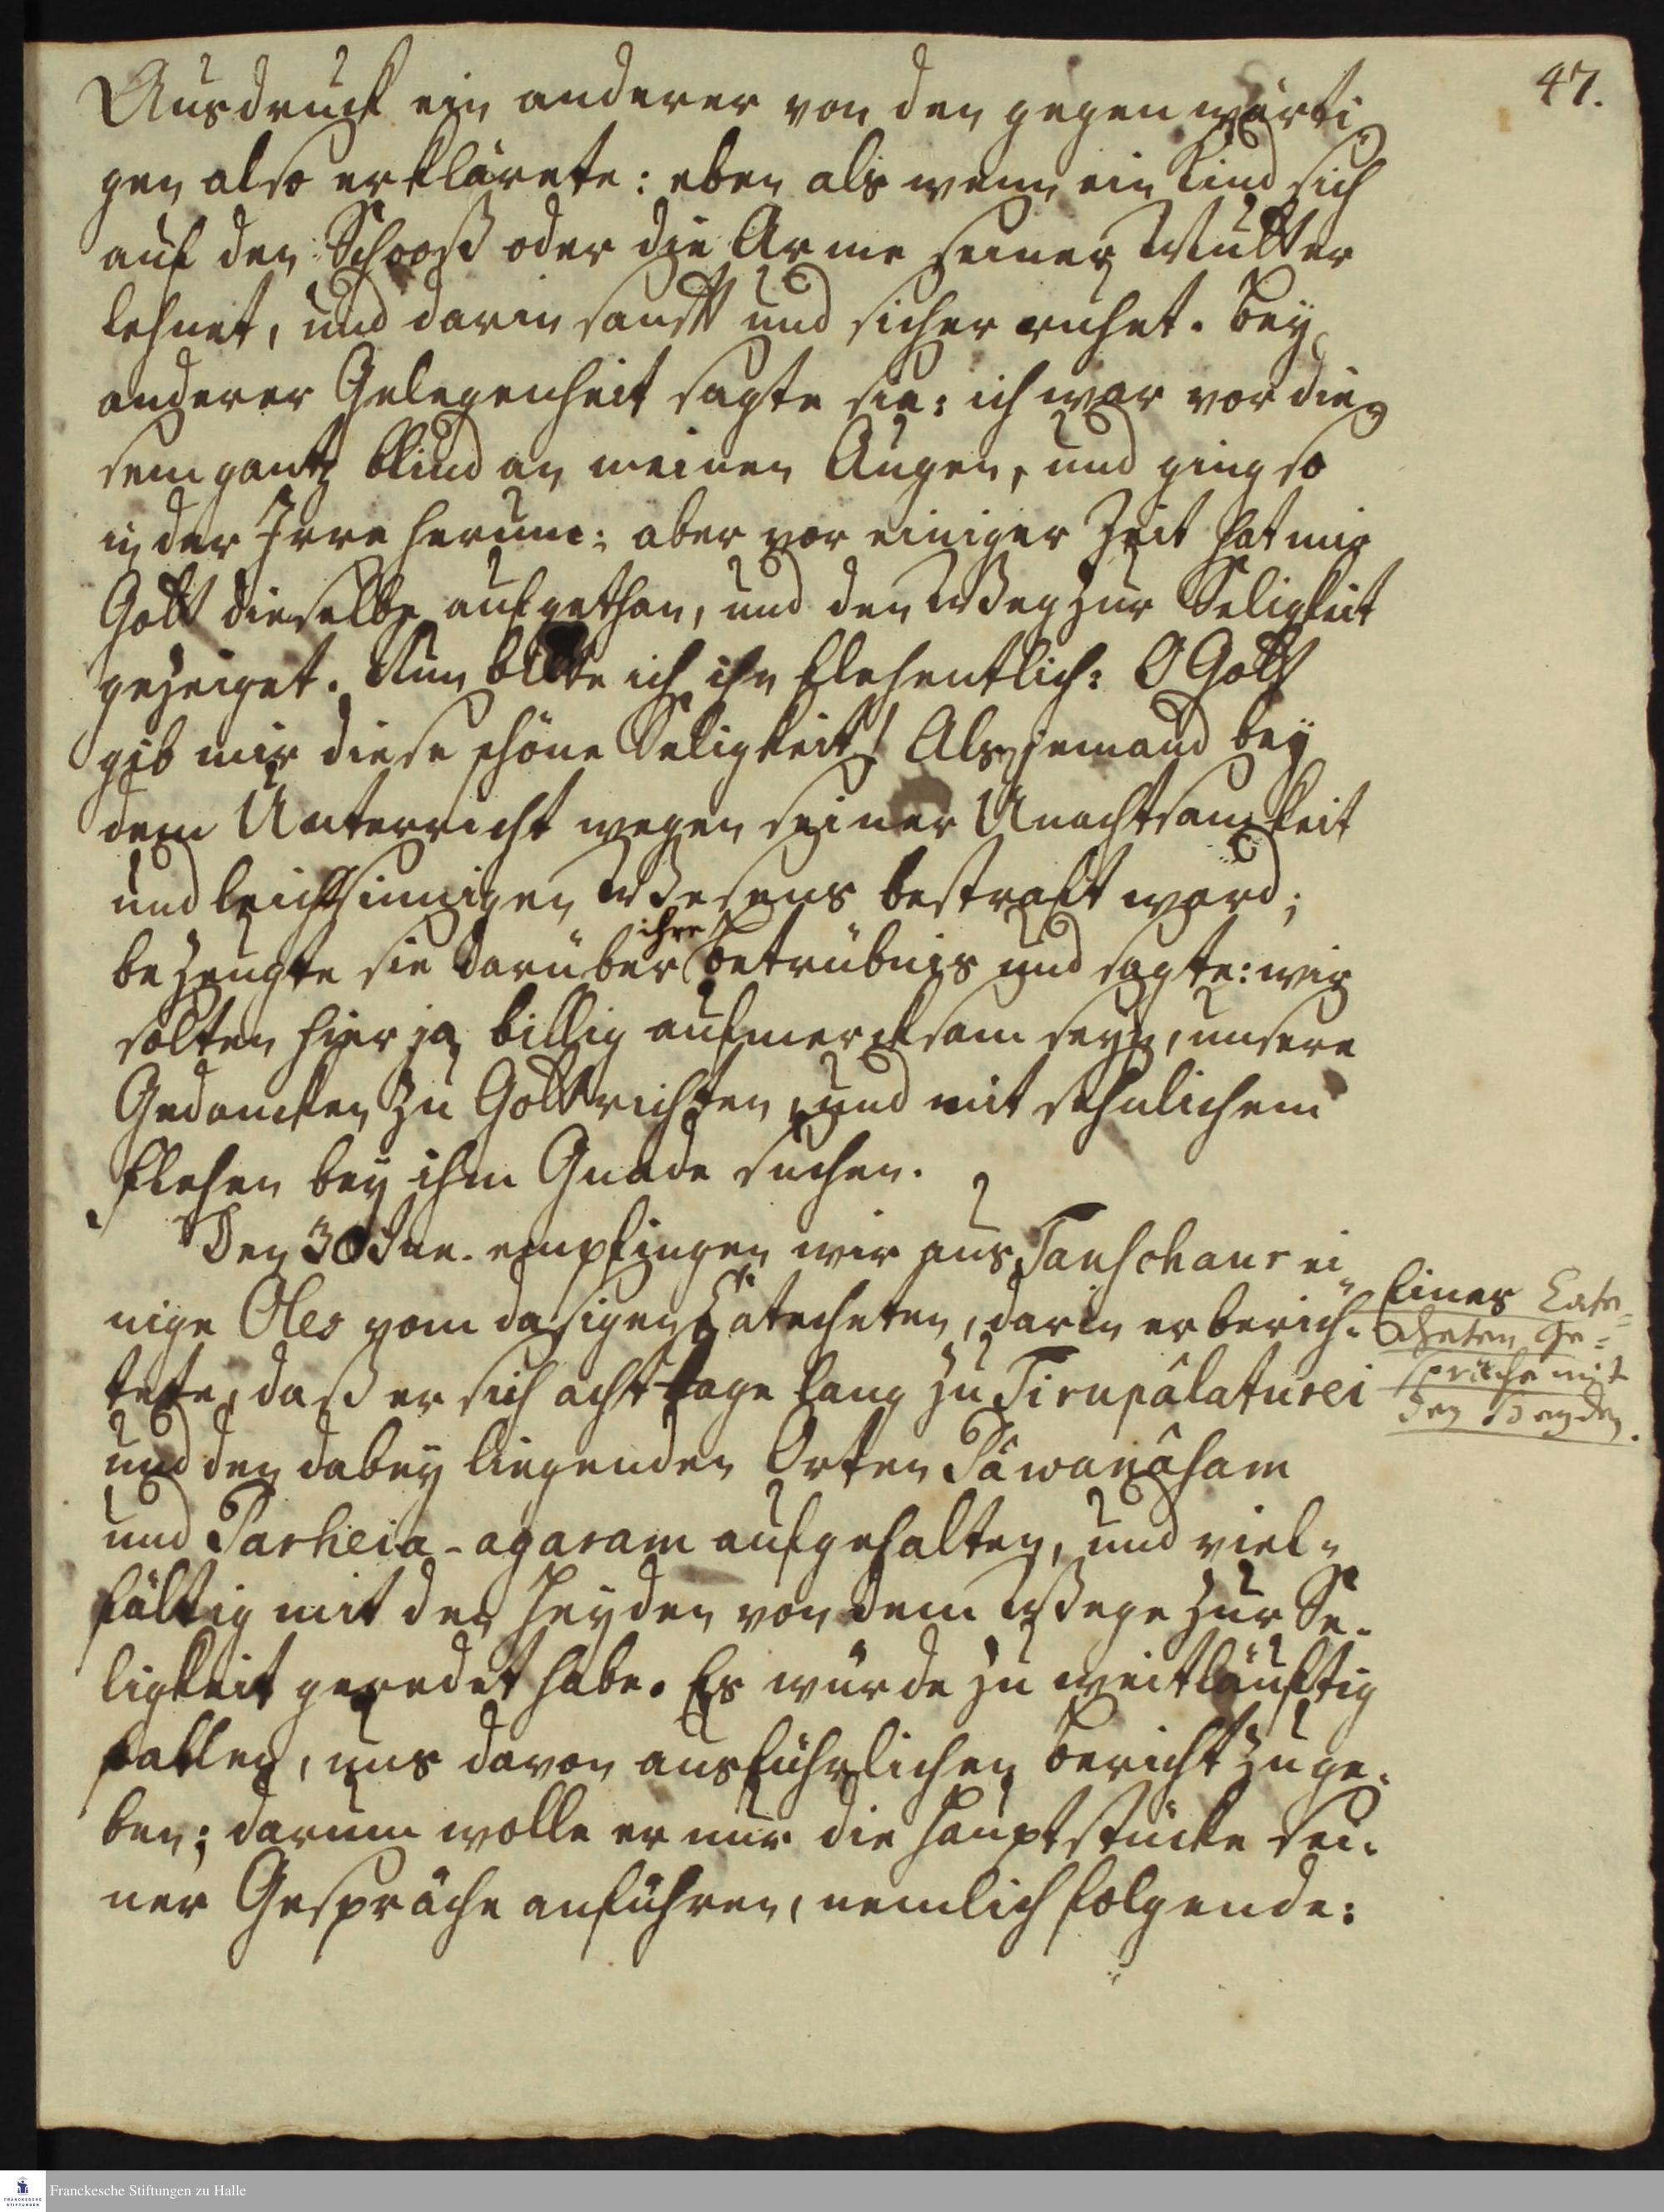 47.
Ausdruck ein anderer von den gegenwärti
gen also erklärete: eben als wenn ein Kind sich
auf den Schooß oder die Arme seiner Mutter
lehnet, und darin sanfft und sicher ruhet. Bey
anderer Gelegenheit sagte sie: ich war vor die-
sem gantz blind an meinen Augen, und ging so
in der Irre herum; aber vor einiger Zeit hat mir
Gott dieselbe aufgethan, und den Weg zur Seligkeit
gezeiget. Nun bitte ich ihn flehentlich: O Gott
gib mir diese schöne Seligkeit! Als jemand bey
dem Unterricht wegen seiner Unachtsamkeit
und leichtsinnigen Wesens bestraft ward;
bezeugte sie darüber ihre Betrübnis und sagte: wir
solten hier ja billig aufmercksam seyn, unsere
Gedancken zu Gott richten, und mit sehnlichem
flehen bey ihm Gnade suchen.
Den 30 Jun. empfingen wir aus Tanschaur ei
nige Oles vom dasigen Catecheten, darin er berich-
tete, daß er sich acht tage lang zu Tirupâlaturei
und den dabey liegenden Orten Pâwanâsam
und Parheia-agaram aufgehalten, und viel-
fältig mit den Heyden von dem Wege zur Se-
ligkeit geredet habe. Es würde zu weitläuftig
fallen, uns davon ausführlichen Bericht zu ge-
ben; darum wolle er nur die Hauptstücke sei-
ner Gespräche anführen, nemlich folgende:
Eines Cate-
cheten Ge-
spräche mit
den Heyden.
Franckesche Stiftungen zu Halle
FRANCKESCHE
STIFTUNGEN